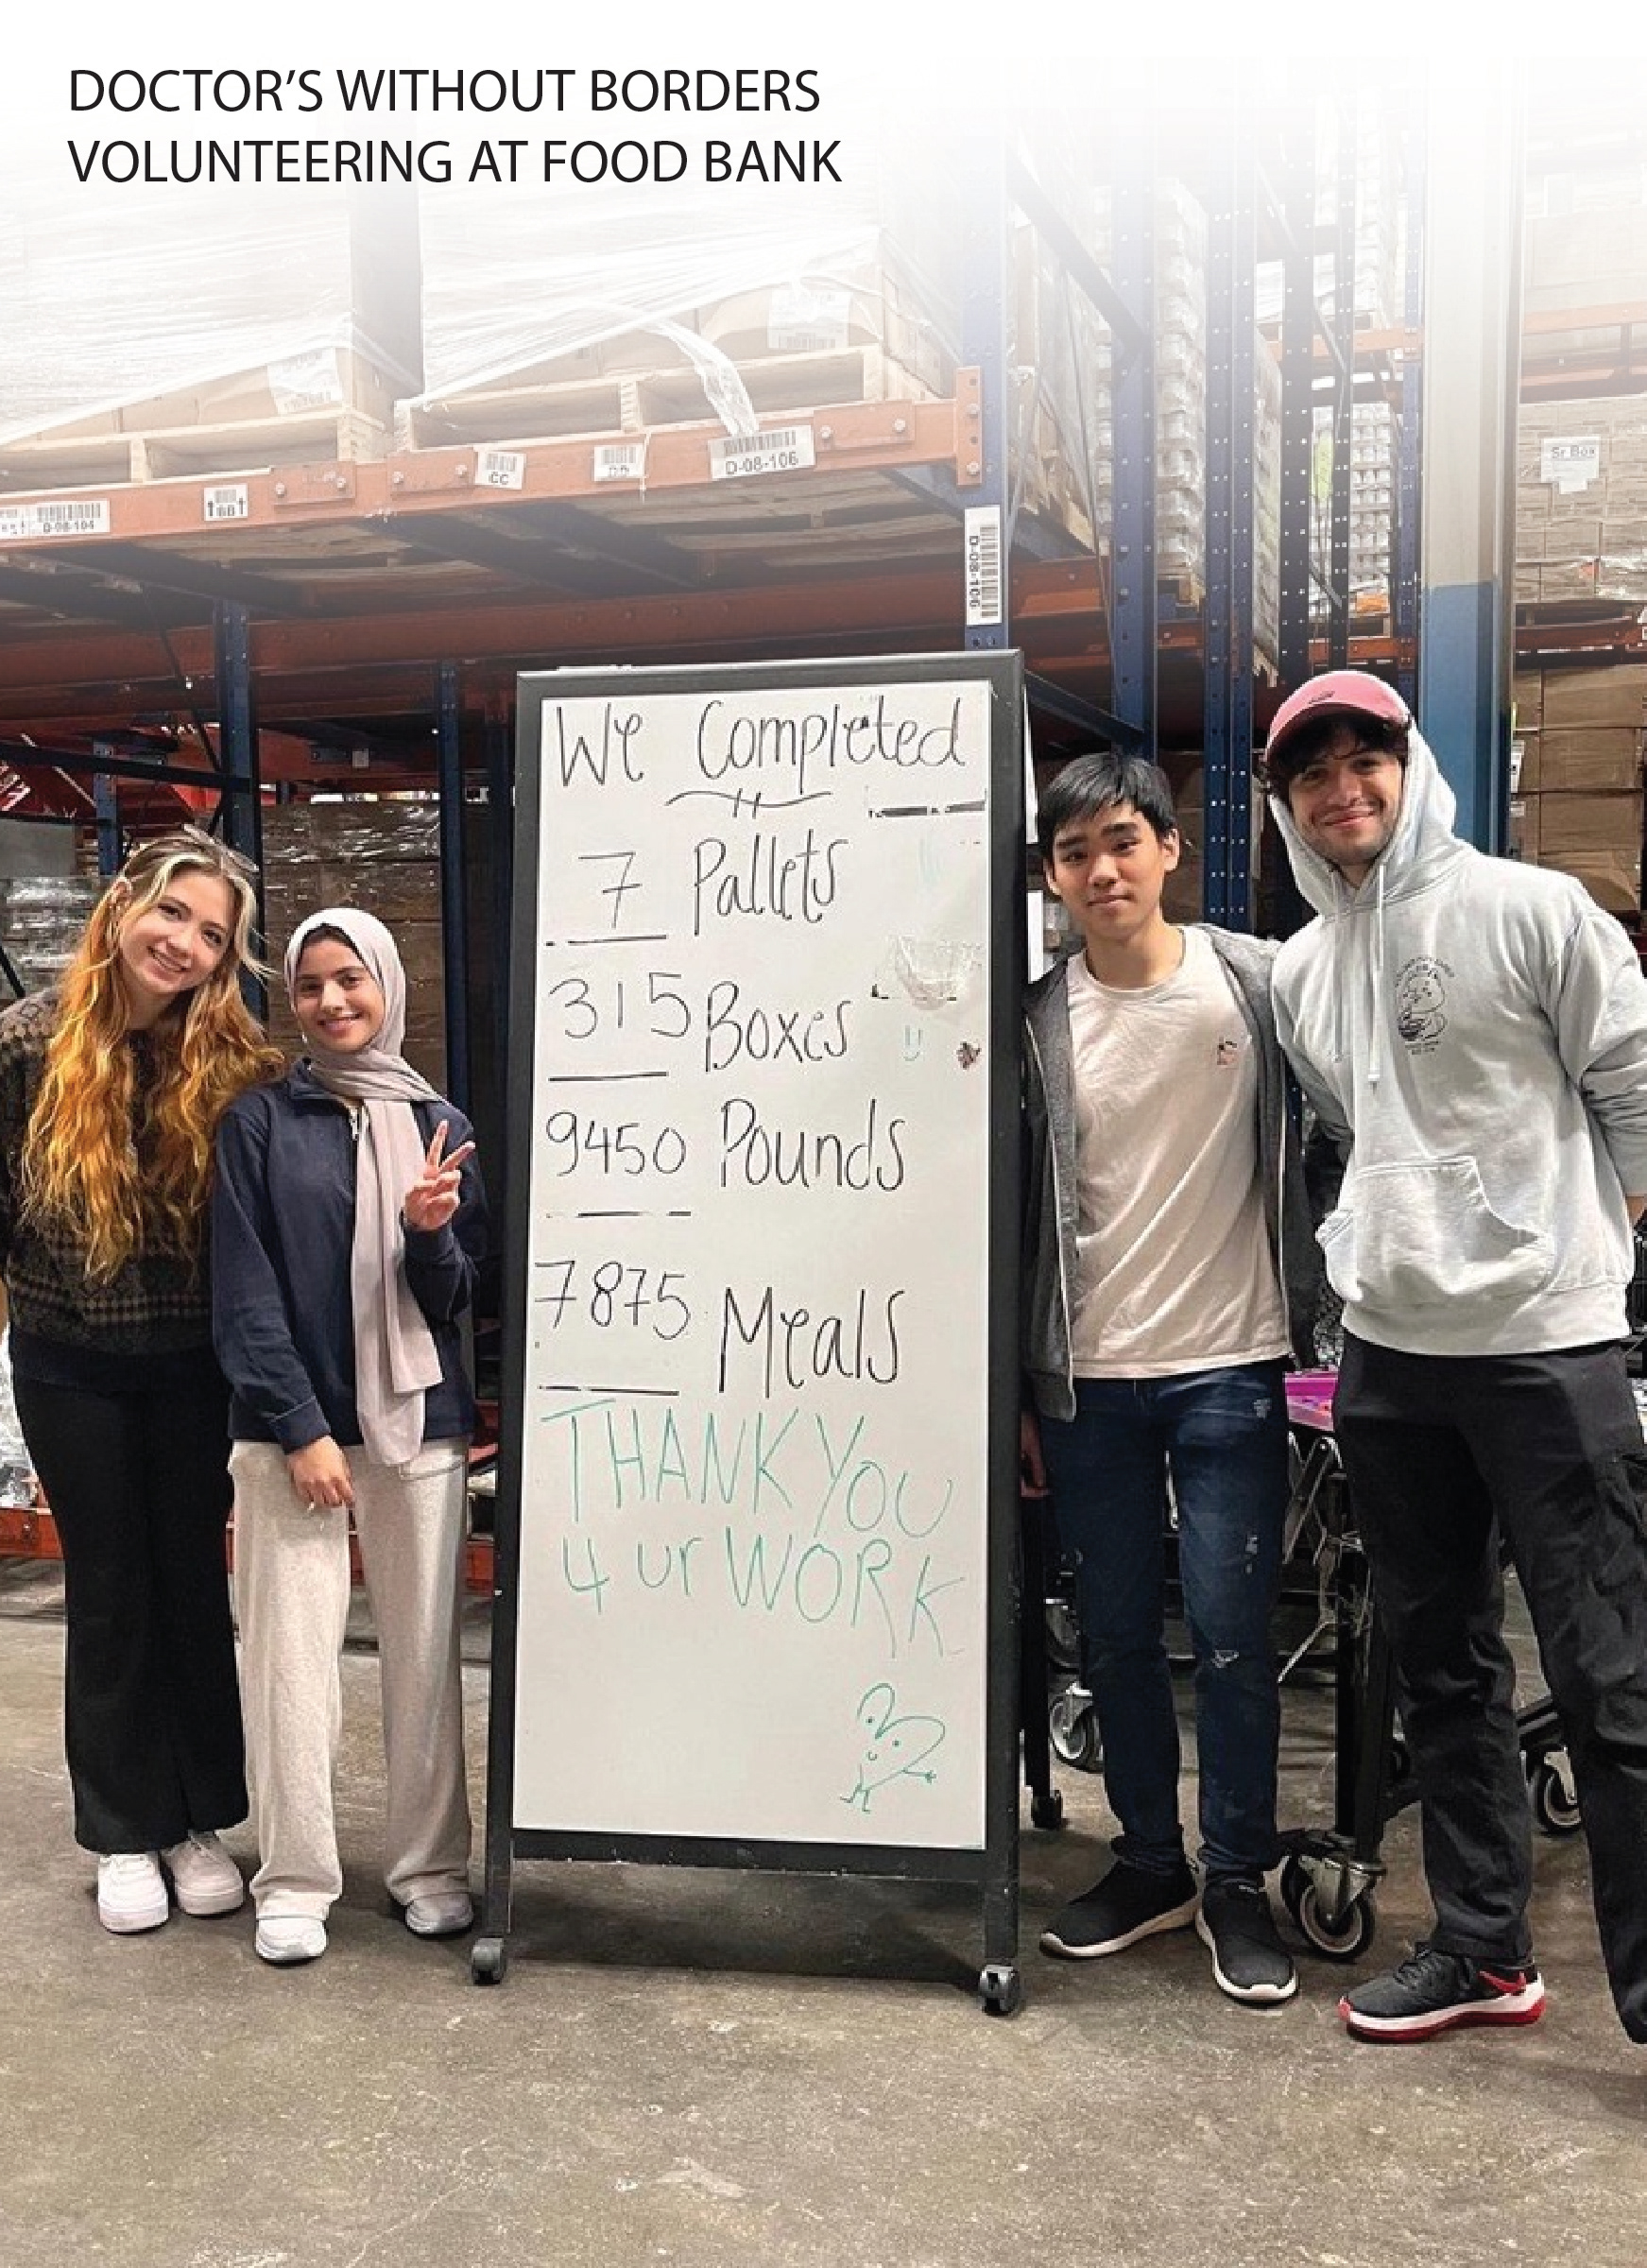 DOCTOR’S WITHOUT BORDERS
VOLUNTEERING AT FOOD BANK
D-08-104
BB
CC
DD
D-08-106
D-08-106
Sr Box
We Completed
7 Pallets
315 Boxes
9450 Pounds
7875 Meals
THANK YOU
4 ur WORK